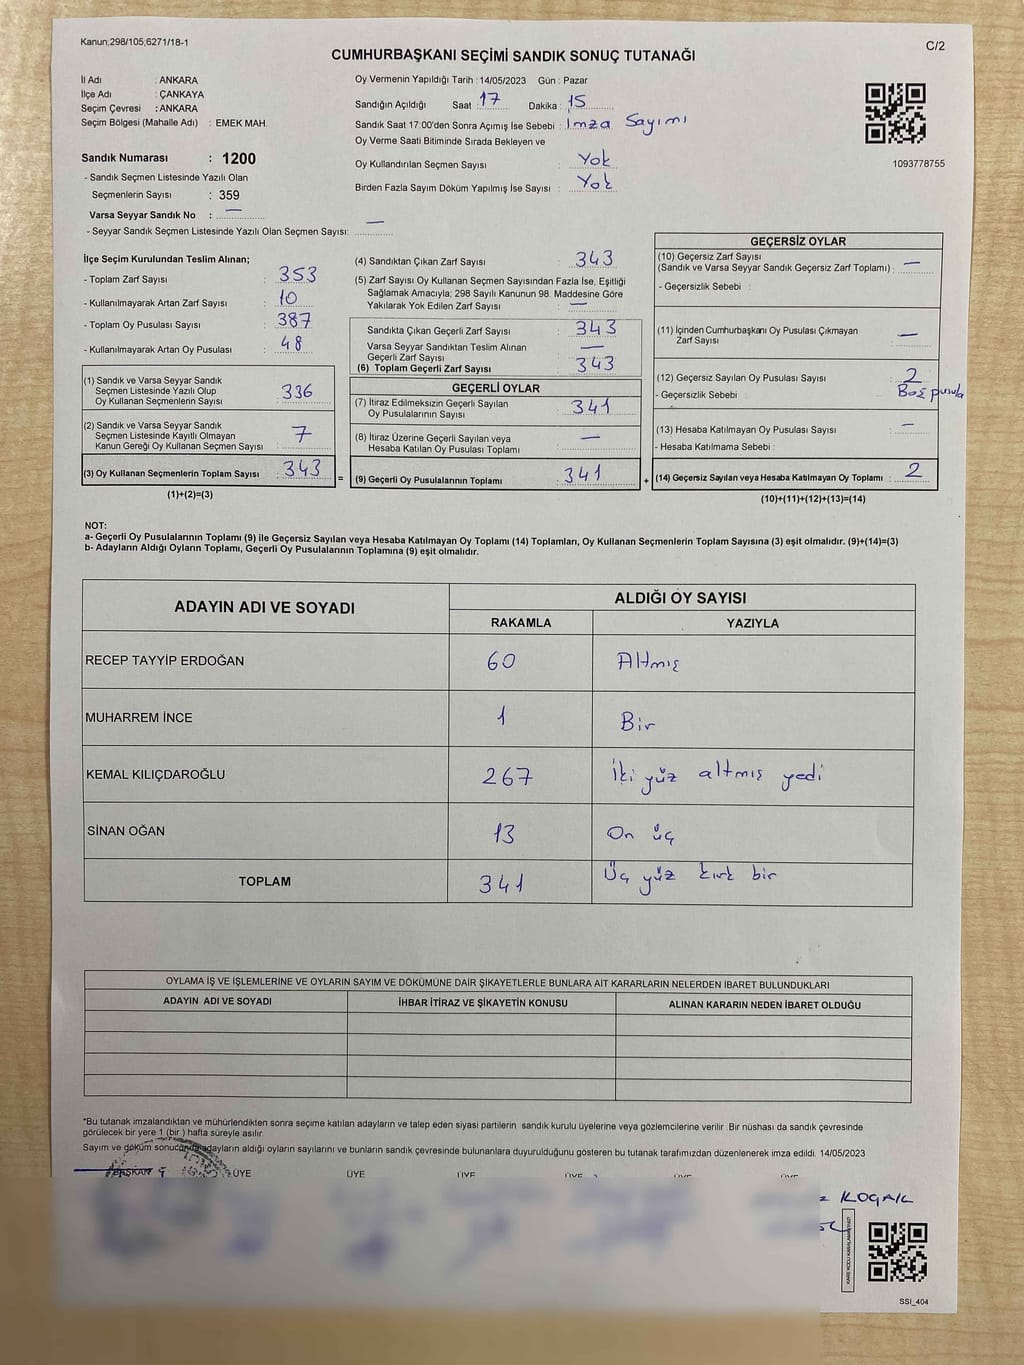 Kanun;298/105;6271/18-1
C/2
CUMHURBAŞKANI SEÇİMİ SANDIK SONUÇ TUTANAĞI
İl Adı : ANKARA
İlçe Adı : ÇANKAYA
Seçim Çevresi : ANKARA
Seçim Bölgesi (Mahalle Adı) : EMEK MAH.
Sandık Numarası : 1200
- Sandık Seçmen Listesinde Yazılı Olan
Seçmenlerin Sayısı : 359
Varsa Seyyar Sandık No : —
- Seyyar Sandık Seçmen Listesinde Yazılı Olan Seçmen Sayısı: —
Oy Vermenin Yapıldığı Tarih : 14/05/2023 Gün : Pazar
Sandığın Açıldığı Saat : 17 Dakika : 15
Sandık Saat 17:00'den Sonra Açımış İse Sebebi : İmza Sayımı
Oy Verme Saati Bitiminde Sırada Bekleyen ve
Oy Kullandırılan Seçmen Sayısı : Yok
Birden Fazla Sayım Döküm Yapılmış İse Sayısı : Yok
1093778755
İlçe Seçim Kurulundan Teslim Alınan;
- Toplam Zarf Sayısı : 353
- Kullanılmayarak Artan Zarf Sayısı : 10
- Toplam Oy Pusulası Sayısı : 387
- Kullanılmayarak Artan Oy Pusulası : 48
(1) Sandık ve Varsa Seyyar Sandık
Seçmen Listesinde Yazılı Olup
Oy Kullanan Seçmenlerin Sayısı : 336
(2) Sandık ve Varsa Seyyar Sandık
Seçmen Listesinde Kayıtlı Olmayan
Kanun Gereği Oy Kullanan Seçmen Sayısı : 7
(3) Oy Kullanan Seçmenlerin Toplam Sayısı : 343
(1)+(2)=(3)
(4) Sandıktan Çıkan Zarf Sayısı : 343
(5) Zarf Sayısı Oy Kullanan Seçmen Sayısından Fazla İse, Eşitliği
Sağlamak Amacıyla; 298 Sayılı Kanunun 98. Maddesine Göre
Yakılarak Yok Edilen Zarf Sayısı : —
Sandıkta Çıkan Geçerli Zarf Sayısı : 343
Varsa Seyyar Sandıktan Teslim Alınan
Geçerli Zarf Sayısı : —
(6) Toplam Geçerli Zarf Sayısı : 343
GEÇERLİ OYLAR
(7) İtiraz Edilmeksizin Geçerli Sayılan
Oy Pusulalarının Sayısı : 341
(8) İtiraz Üzerine Geçerli Sayılan veya
Hesaba Katılan Oy Pusulası Toplamı : —
= (9) Geçerli Oy Pusulalarının Toplamı : 341
GEÇERSİZ OYLAR
(10) Geçersiz Zarf Sayısı
(Sandık ve Varsa Seyyar Sandık Geçersiz Zarf Toplamı) : —
- Geçersizlik Sebebi :
(11) İçinden Cumhurbaşkanı Oy Pusulası Çıkmayan
Zarf Sayısı : —
(12) Geçersiz Sayılan Oy Pusulası Sayısı : 2
- Geçersizlik Sebebi : Boş pusula
(13) Hesaba Katılmayan Oy Pusulası Sayısı : —
- Hesaba Katılmama Sebebi :
+ (14) Geçersiz Sayılan veya Hesaba Katılmayan Oy Toplamı : 2
(10)+(11)+(12)+(13)=(14)
NOT:
a- Geçerli Oy Pusulalarının Toplamı (9) ile Geçersiz Sayılan veya Hesaba Katılmayan Oy Toplamı (14) Toplamları, Oy Kullanan Seçmenlerin Toplam Sayısına (3) eşit olmalıdır. (9)+(14)=(3)
b- Adayların Aldığı Oyların Toplamı, Geçerli Oy Pusulalarının Toplamına (9) eşit olmalıdır.
ADAYIN ADI VE SOYADI ALDIĞI OY SAYISI
RAKAMLA YAZIYLA
RECEP TAYYİP ERDOĞAN 60 Altmış
MUHARREM İNCE 1 Bir
KEMAL KILIÇDAROĞLU 267 İki yüz altmış yedi
SİNAN OĞAN 13 On üç
TOPLAM 341 Üç yüz kırk bir
OYLAMA İŞ VE İŞLEMLERİNE VE OYLARIN SAYIM VE DÖKÜMÜNE DAİR ŞİKAYETLERLE BUNLARA AİT KARARLARIN NELERDEN İBARET BULUNDUKLARI
ADAYIN ADI VE SOYADI İHBAR İTİRAZ VE ŞİKAYETİN KONUSU ALINAN KARARIN NEDEN İBARET OLDUĞU
*Bu tutanak imzalandıktan ve mühürlendikten sonra seçime katılan adayların ve talep eden siyasi partilerin sandık kurulu üyelerine veya gözlemcilerine verilir. Bir nüshası da sandık çevresinde
görülecek bir yere 1 (bir ) hafta süreyle asılır.
Sayım ve döküm sonucunda adayların aldığı oyların sayılarını ve bunların sandık çevresinde bulunanlara duyurulduğunu gösteren bu tutanak tarafımızdan düzenlenerek imza edildi. 14/05/2023
BAŞKAN ÜYE ÜYE ÜYE ÜYE
KOÇAK
KARE KODU KARALAMAYINIZ!
SSI_404